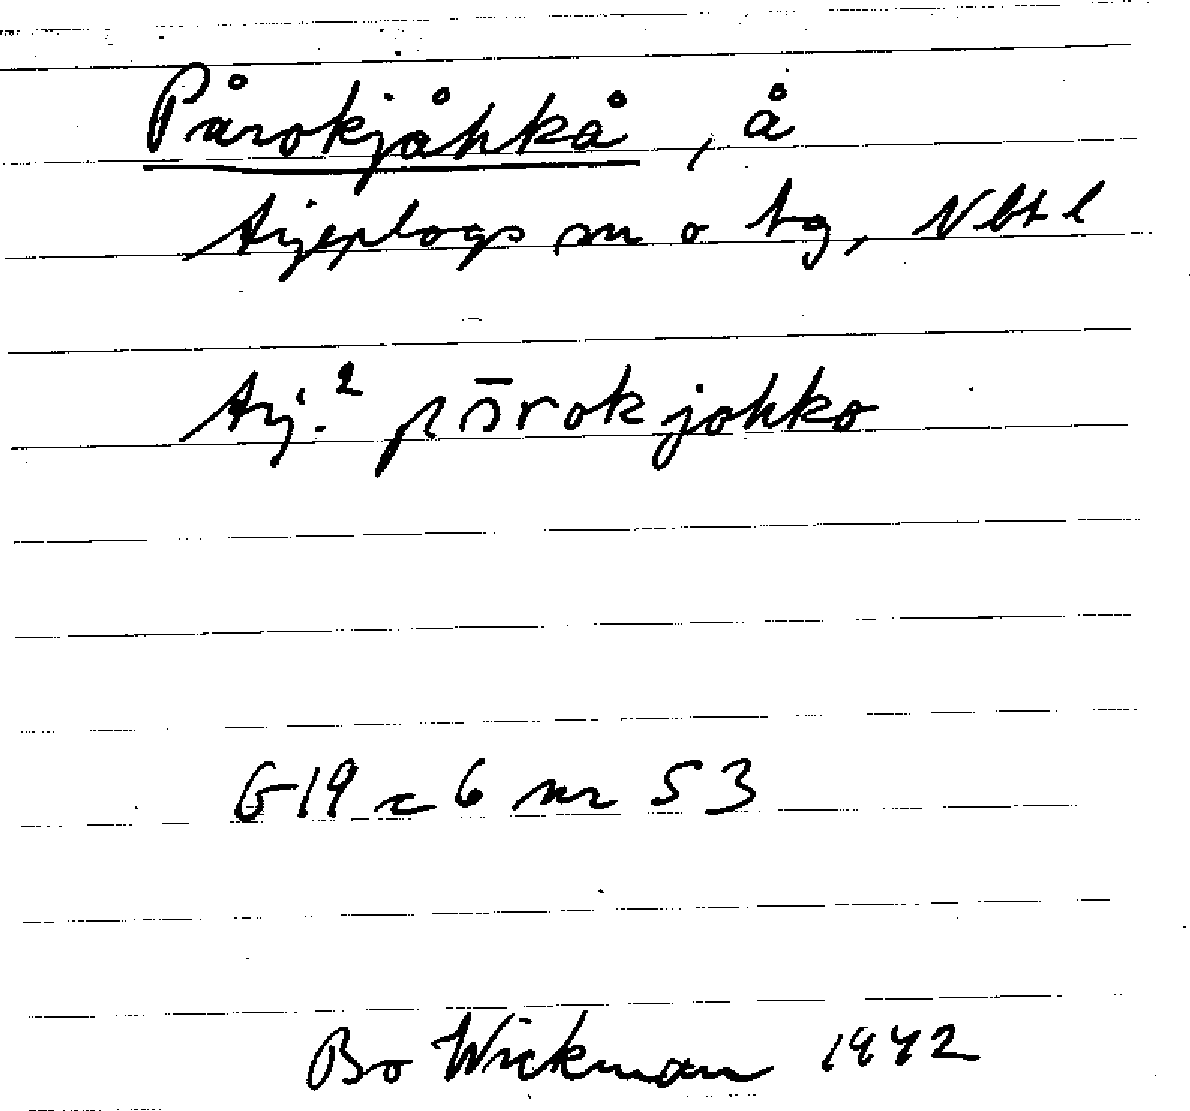 Pårokjåhkå, å
Arjeplogs sn o tg, Nbt l
Arj.² pōrokjohko
G19 c 6 nr 53
Bo Wickman 1942